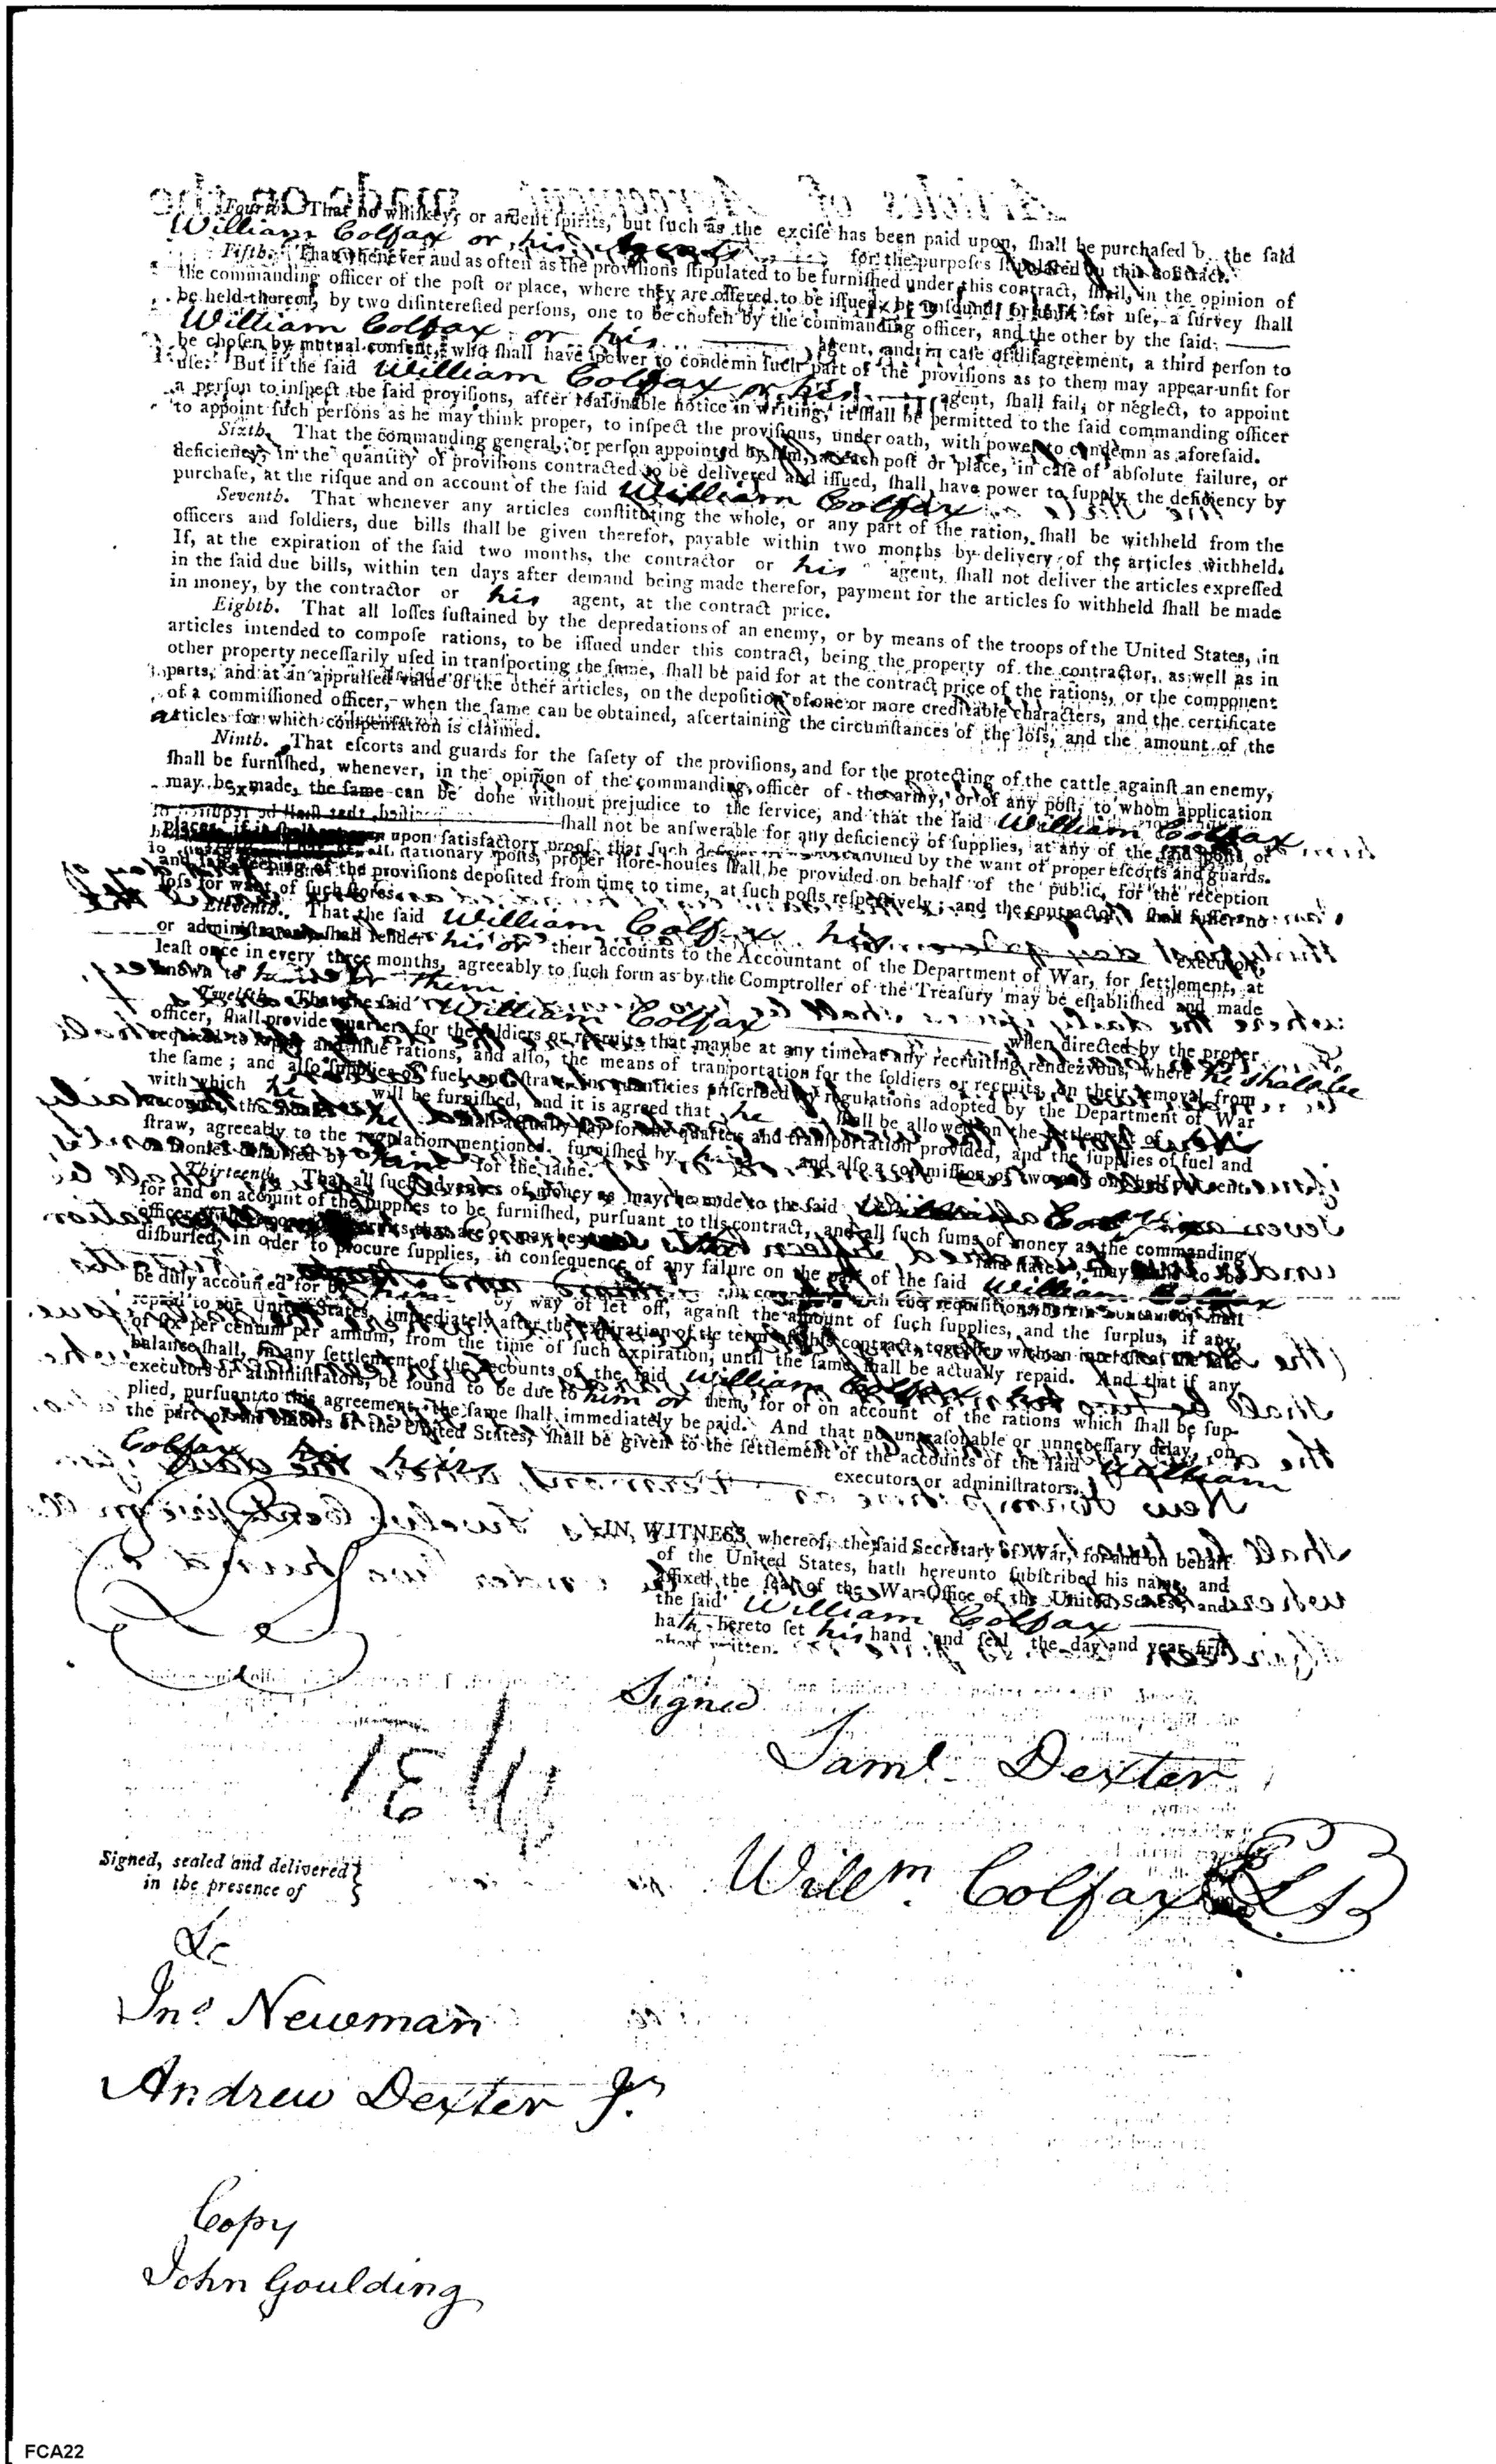 Fourth. That no whiskey, or ardent spirits, but such as the excise has been paid upon, shall be purchased b the said
William Colfax or his Agents for the purposes stipulated in this contract.
Fifth. That whenever and as often as the provisions stipulated to be furnished under this contract, shall, in the opinion of
the commanding officer of the post or place, where they are offered to be issued, be unsound, or unfit for use, a survey shall
be held thereon, by two disinterested persons, one to be chosen by the commanding officer, and the other by the said
William Colfax or his agent, and in case of disagreement, a third person to
be chosen by mutual consent, who shall have power to condemn such part of the provisions as to them may appear unfit for
use. But if the said William Colfax or his agent, shall fail, or neglect, to appoint
a person to inspect the said provisions, after reasonable notice in writing, it shall be permitted to the said commanding officer
to appoint such persons as he may think proper, to inspect the provisions, under oath, with power to condemn as aforesaid.
Sixth. That the commanding general, or person appointed by him, at each post or place, in case of absolute failure, or
deficiency, in the quantity of provisions contracted to be delivered and issued, shall have power to supply the deficiency by
purchase, at the risque and on account of the said William Colfax
Seventh. That whenever any articles constituting the whole, or any part of the ration, shall be withheld from the
officers and soldiers, due bills shall be given therefor, payable within two months by delivery of the articles withheld.
If, at the expiration of the said two months, the contractor or his agent, shall not deliver the articles expressed
in the said due bills, within ten days after demand being made therefor, payment for the articles so withheld shall be made
in money, by the contractor or his agent, at the contract price.
Eighth. That all losses sustained by the depredations of an enemy, or by means of the troops of the United States, in
articles intended to compose rations, to be issued under this contract, being the property of the contractor, as well as in
other property necessarily used in transporting the same, shall be paid for at the contract price of the rations, or the component
parts, and at an appraised value of the other articles, on the deposition of one or more creditable characters, and the certificate
of a commissioned officer, when the same can be obtained, ascertaining the circumstances of the loss, and the amount of the
articles for which compensation is claimed.
Ninth. That escorts and guards for the safety of the provisions, and for the protecting of the cattle against an enemy,
shall be furnished, whenever, in the opinion of the commanding officer of the army, or of any post, to whom application
may be made, the same can be done without prejudice to the service, and that the said William Colfax
shall not be answerable for any deficiency of supplies, at any of the said posts or
places, if it shall appear upon satisfactory proof, that such deficiency was occasioned by the want of proper escorts and guards.
all stationary posts, proper store-houses shall be provided on behalf of the public, for the reception
and safe keeping of the provisions deposited from time to time, at such posts respectively; and the contractor shall suffer no
loss for want of such stores.
Eleventh. That the said William Colfax his executors,
or administrators shall render his or their accounts to the Accountant of the Department of War, for settlement, at
least once in every three months, agreeably to such form as by the Comptroller of the Treasury may be established and made
known to him or them.
Twelfth. That the said William Colfax when directed by the proper
officer, shall provide quarters for the soldiers or recruits that may be at any time at any recruiting rendezvous, where he shall be
required to supply and issue rations, and also, the means of transportation for the soldiers or recruits, on their removal from
the same; and also supplies of fuel and straw in quantities prescribed by regulations adopted by the Department of War
with which he will be furnished, and it is agreed that he shall be allowed on the settlement of
accounts, the he shall actually pay for the quarters and transportation provided, and the supplies of fuel and
straw, agreeably to the regulation mentioned, furnished by him and also a commission of two and one half per cent.
on monies disbursed by him for the same.
Thirteenth. That all such advances of money as may be made to the said William Colfax
for and on account of the supplies to be furnished, pursuant to this contract, and all such sums of money as the commanding
officer
disbursed, in order to procure supplies, in consequence of any failure on the part of the said William Colfax
be duly accounted for by him by way of set off, against the amount of such supplies, and the surplus, if any,
repaid to the United States, immediately after the expiration of the term of this contract, together with an interest at the rate
of six per centum per annum, from the time of such expiration, until the same shall be actually repaid. And that if any
balance shall, on any settlement of the accounts of the said William Colfax his
executors or administrators, be found to be due to him or them, for or on account of the rations which shall be sup-
plied, pursuant to this agreement, the same shall immediately be paid. And that no unreasonable or unnecessary delay, on
the part of the officers of the United States, shall be given to the settlement of the accounts of the said William
Colfax his heirs executors or administrators.
IN WITNESS whereof, the said Secretary of War, for and on behalf
of the United States, hath hereunto subscribed his name, and
affixed the seal of the War-Office of the United States; and
the said William Colfax
hath hereto set his hand and seal the day and year first
above written.
Signed
Saml Dexter
Signed, sealed and delivered
in the presence of
Willm. Colfax LS
Jno. Newman
Andrew Dexter Jr.
Copy
John Goulding
FCA22